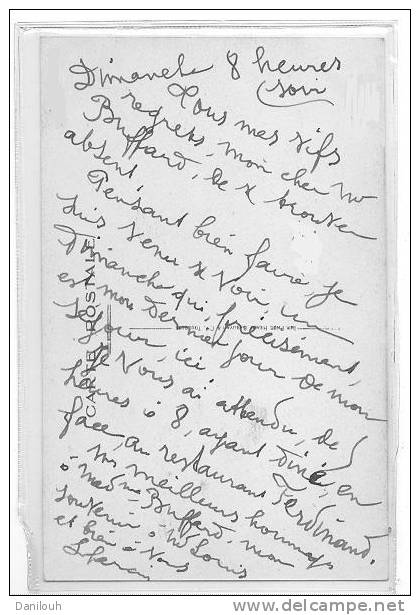 Dimanche 8 heures
soir
Tous mes vifs
regrets, mon cher Mr
Buffard, de vs trouver
absent.
Pensant bien faire je
suis venu vs voir un
Dimanche qui, précisément,
est mon dernier jour de mon
séjour ici.
Je vous ai attendu, de 5
heures à 8, ayant dîné, en
face, au restaurant Ferdinand.
mes meilleurs hommages
à Madme Buffard, mon
souvenir à Mr Louis
et bien à vous
CARTE POSTALE
Danilouh
www.delcampe.net